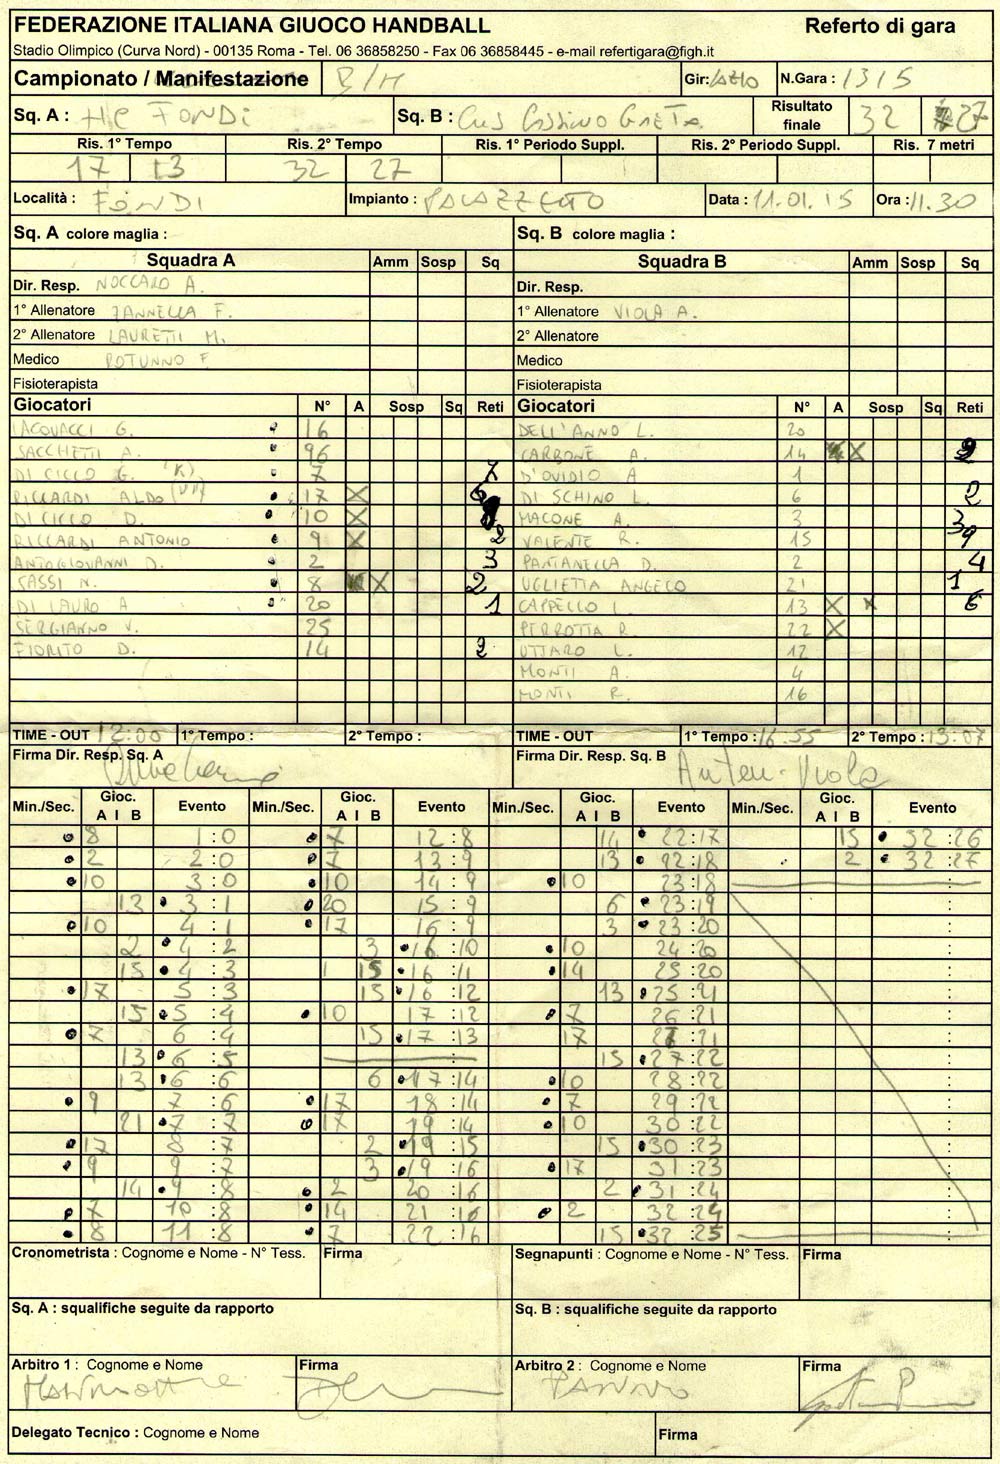 FEDERAZIONE ITALIANA GIUOCO HANDBALL Referto di gara
Stadio Olimpico (Curva Nord) - 00135 Roma - Tel. 06 36858250 - Fax 06 36858445 - e-mail refertigara@figh.it
Campionato / Manifestazione B/M Gir: LAZIO N.Gara : 1315
Sq. A : H.C FONDI Sq. B : CUS CASSINO GAETA Risultato finale 32 27
Ris. 1° Tempo Ris. 2° Tempo Ris. 1° Periodo Suppl. Ris. 2° Periodo Suppl. Ris. 7 metri
17 13 32 27
Località : FONDI Impianto : PALAZZETTO Data : 11.01.15 Ora : 11.30
Sq. A colore maglia : Sq. B colore maglia :
Squadra A Amm Sosp Sq Squadra B Amm Sosp Sq
Dir. Resp. NOCCARO A. Dir. Resp.
1° Allenatore ZANNELLA F. 1° Allenatore VIOLA A.
2° Allenatore LAURETTI M. 2° Allenatore
Medico ROTUNNO F Medico
Fisioterapista Fisioterapista
Giocatori N° A Sosp Sq Reti Giocatori N° A Sosp Sq Reti
IACOVACCI G. 16 DELL'ANNO L. 20
SACCHETTI A. 96 CARBONE A. 14 X 2
DI CICCO G. (K) 7 7 D'OVIDIO A 1
RICCARDI ALDO (VK) 17 X 6 DI SCHINO L. 6 2
DI CICCO D. 10 X MACONE A. 3 3
RICCARDI ANTONIO 9 X 2 VALENTE R. 15 9
ANTOGIOVANNI D. 2 3 PANTANELLA D. 2 4
SASSI N. 8 X 2 UGLIETTA ANGELO 21 1
DI LAURO A 20 1 CAPPELLO L. 13 X X 6
SERGIANNO V. 25 PERROTTA R. 22 X
FIORITO D. 14 2 UTTARO L. 12
MONTI A. 4
MONTI R. 16
TIME - OUT 12:00 1° Tempo : 2° Tempo : TIME - OUT 1° Tempo : 16:55 2° Tempo : 13:07
Firma Dir. Resp. Sq. A Firma Dir. Resp. Sq. B Viola
Min./Sec. Gioc. A I B Evento Min./Sec. Gioc. A I B Evento Min./Sec. Gioc. A I B Evento Min./Sec. Gioc. A I B Evento
8 1:0 7 12:8 14 22:17 15 32:26
2 2:0 7 13:9 13 22:18 2 32:27
10 3:0 10 14:9 10 23:18
13 3:1 20 15:9 6 23:19
10 4:1 17 16:9 3 23:20
2 4:2 3 16:10 10 24:20
15 4:3 15 16:11 14 25:20
17 5:3 15 16:12 13 25:21
15 5:4 10 17:12 7 26:21
7 6:4 15 17:13 17 27:21
13 6:5 15 27:22
13 6:6 6 17:14 10 28:22
9 7:6 17 18:14 7 29:22
21 7:7 17 19:14 10 30:22
17 8:7 2 19:15 15 30:23
9 9:7 3 19:16 17 31:23
14 9:8 2 20:16 2 31:24
7 10:8 14 21:16 2 32:24
8 11:8 7 22:16 15 32:25
Cronometrista : Cognome e Nome - N° Tess. Firma Segnapunti : Cognome e Nome - N° Tess. Firma
Sq. A : squalifiche seguite da rapporto Sq. B : squalifiche seguite da rapporto
Arbitro 1 : Cognome e Nome Firma Arbitro 2 : Cognome e Nome Firma
Delegato Tecnico : Cognome e Nome Firma